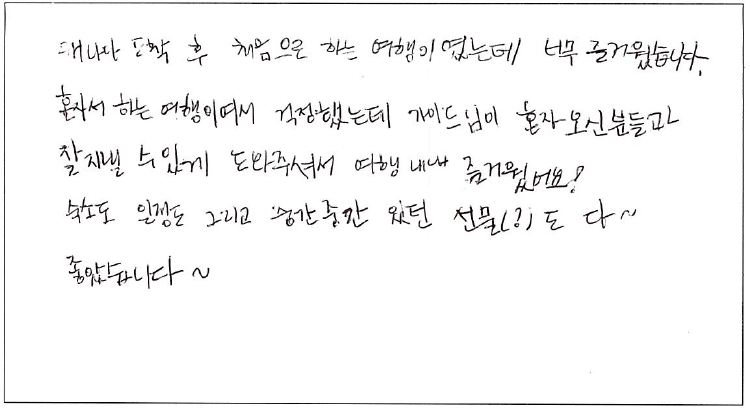 캐나다 도착 후 처음으로 하는 여행이였는데 너무 즐거웠습니다.
혼자서 하는 여행이여서 걱정했는데 가이드님이 혼자 오신 분들과
잘 지낼 수 있게 도와주셔서 여행 내내 즐거웠어요!
숙소도 일정도 그리고 중간중간 있던 선물(?)도 다~
좋았습니다~